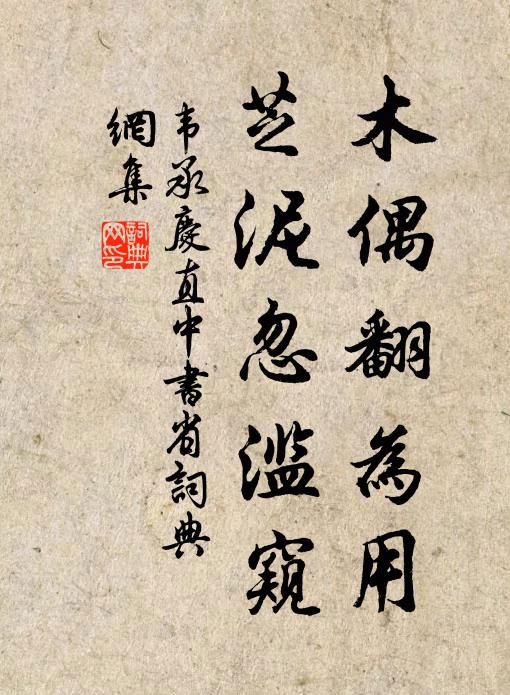 木偶翻為用
芝泥忽濫窺
韦承慶直中書省詞典
網集
詞典网印